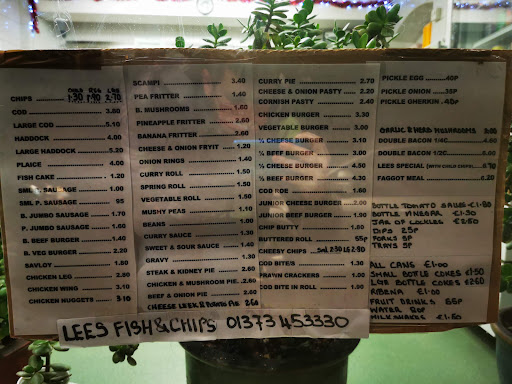 CHIPS 1.30 1.90 2.70
COD 3.60
LARGE COD 5.10
HADDOCK 4.00
LARGE HADDOCK 5.20
PLAICE 4.00
FISH CAKE 1.20
SML. SAUSAGE 1.00
SML P. SAUSAGE 95
B. JUMBO SAUSAGE 1.70
P. JUMBO SAUSAGE 1.60
B. BEEF BURGER 1.40
B. VEG BURGER 2.20
SAVLOY 1.80
CHICKEN LEG 2.80
CHICKEN WING 3.10
CHICKEN NUGGETS 3.10
SCAMPI 3.40
PEA FRITTER 1.40
B. MUSHROOMS 2.90
PINEAPPLE FRITTER 2.60
BANANA FRITTER 2.60
CHEESE & ONION FRYIT 1.20
ONION RINGS 1.40
CURRY ROLL 1.50
SPRING ROLL 1.50
VEGETABLE ROLL 1.50
MUSHY PEAS 1.10
BEANS 1.00
CURRY SAUCE 1.30
SWEET & SOUR SAUCE 1.40
GRAVY 1.30
STEAK & KIDNEY PIE 2.60
CHICKEN & MUSHROOM PIE 2.60
BEEF & ONION PIE 2.60
CHEESE LEEK & POTATO PIE 2.60
CURRY PIE 2.70
CHEESE & ONION PASTY 2.20
CORNISH PASTY 2.40
CHICKEN BURGER 3.30
VEGETABLE BURGER 3.00
¼ CHEESE BURGER 3.10
¼ BEEF BURGER 3.00
½ CHEESE BURGER 4.30
½ BEEF BURGER 4.30
COD ROE 1.60
JUNIOR CHEESE BURGER 2.00
JUNIOR BEEF BURGER 1.90
CHIP BUTTY 1.60
BUTTERED ROLL 55p
CHEESY CHIPS
COD BITE'S
PRAWN CRACKERS 1.00
COD BITE IN ROLL 1.50
PICKLE EGG 40P
PICKLE ONION 35P
PICKLE GHERKIN 40P
GARLIC & HERB MUSHROOMS 3.00
DOUBLE BACON 1/4C 4.80
DOUBLE BACON 1/2C 6.00
LEES SPECIAL
FAGGOT MEAL 6.20
BOTTLE TOMATO SAUSE £1.80
BOTTLE VINEGAR £1.30
JAR OF COCKLES £2.50
DIPS 25P
FORKS 5P
TRAYS 5P
ALL CANS £1.00
SMALL BOTTLE COKES £1.50
LGE BOTTLE COKES £2.60
RIBENA £1.00
FRUIT DRINKS 65P
WATER 80P
MILKSHAKES £1.50
LEES FISH & CHIPS 01373 453330